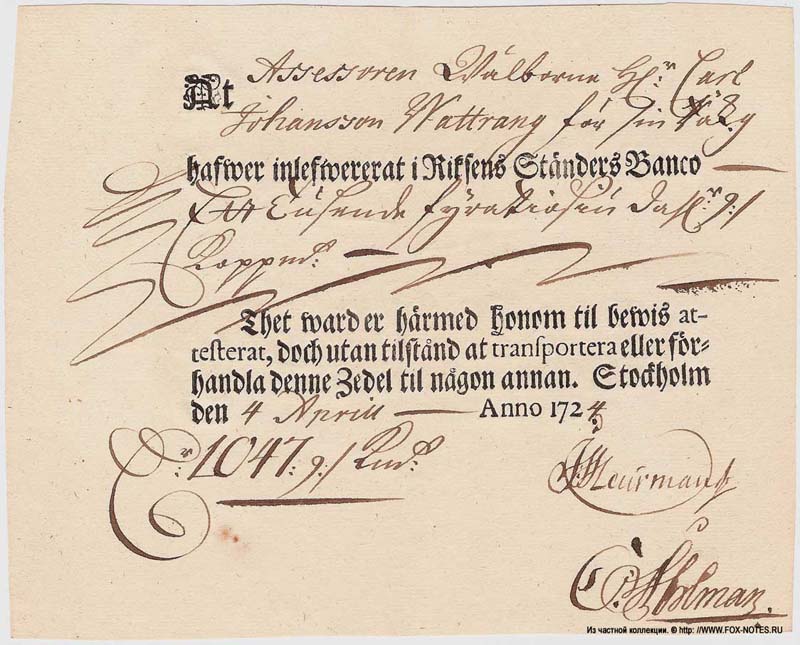 At Assessoren Wälborne H:r Carl
Johansson Wattrang för sin
hafwer inlefwererat i Riksens Ständers Banco
Ett Tusende fyratiosiu Dal:r 9:/
Koppm:t
Thet warder härmed honom til bewis at-
testerat, doch utan tilstånd at transportera eller för-
handla denne Zedel til någon annan. Stockholm
den 4 Aprill Anno 1724
D:r 1047: 9:/ Km:t
Meurman
Ahlman.
Из частной коллекции. © http: //WWW.FOX-NOTES.RU